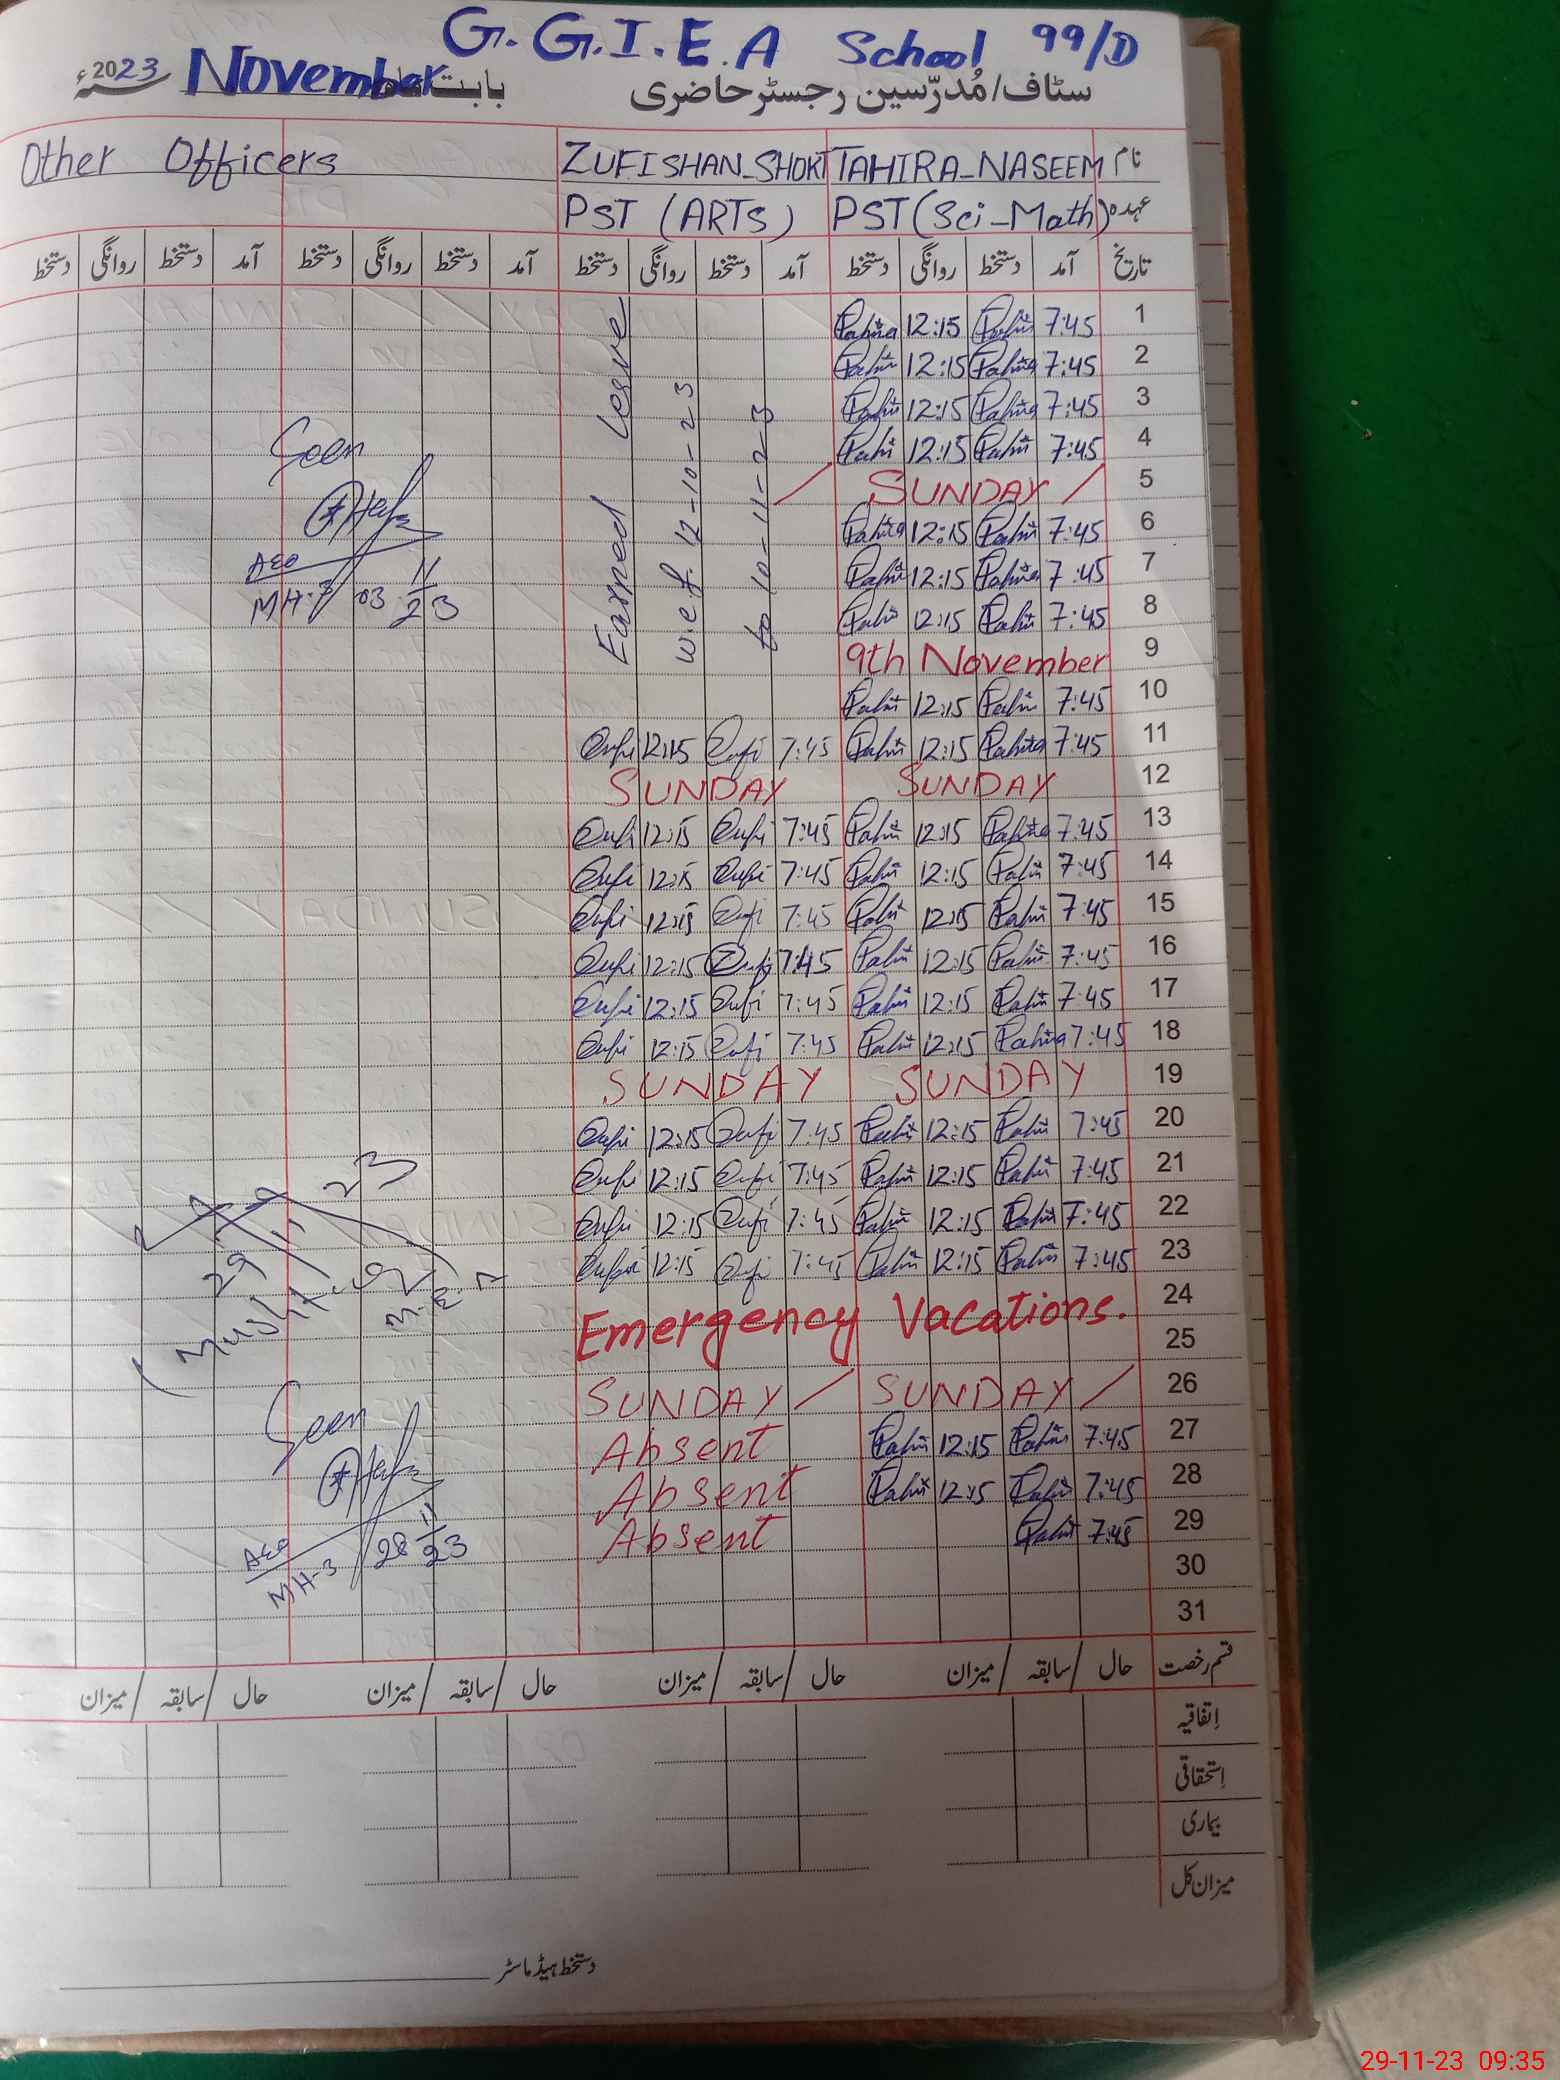 G.G.I.E.A School 99/D
سٹاف/مُدرّسین رجسٹر حاضری بابت ماہ November 2023ء
نام TAHIRA_NASEEM ZUFISHAN_SHOKT Other Officers
عہدہ PST (Sci_Math) PST (ARTS)
تاریخ آمد دستخط روانگی دستخط آمد دستخط روانگی دستخط آمد دستخط روانگی دستخط آمد دستخط روانگی دستخط
1 7:45 Tahira 12:15 Tahira
2 7:45 Tahira 12:15 Tahira
3 7:45 Tahira 12:15 Tahira
4 7:45 Tahira 12:15 Tahira
5 SUNDAY
6 7:45 Tahira 12:15 Tahira
7 7:45 Tahira 12:15 Tahira
8 7:45 Tahira 12:15 Tahira
9 9th November
10 7:45 Tahira 12:15 Tahira
Earned leave
w.e.f. 12-10-23
to 10-11-23
11 7:45 Tahira 12:15 Tahira 7:45 Zufi 12:15 Zufi
12 SUNDAY SUNDAY
13 7:45 Tahira 12:15 Tahira 7:45 Zufi 12:15 Zufi
14 7:45 Tahira 12:15 Tahira 7:45 Zufi 12:15 Zufi
15 7:45 Tahira 12:15 Tahira 7:45 Zufi 12:15 Zufi
16 7:45 Tahira 12:15 Tahira 7:45 Zufi 12:15 Zufi
17 7:45 Tahira 12:15 Tahira 7:45 Zufi 12:15 Zufi
18 7:45 Tahira 12:15 Tahira 7:45 Zufi 12:15 Zufi
19 SUNDAY SUNDAY
20 7:45 Tahira 12:15 Tahira 7:45 Zufi 12:15 Zufi
21 7:45 Tahira 12:15 Tahira 7:45 Zufi 12:15 Zufi
22 7:45 Tahira 12:15 Tahira 7:45 Zufi 12:15 Zufi
23 7:45 Tahira 12:15 Tahira 7:45 Zufi 12:15 Zufi
24 Emergency Vacations.
25
26 SUNDAY SUNDAY
27 7:45 Tahira 12:15 Tahira Absent
28 7:45 Tahira 12:15 Tahira Absent
29 7:45 Tahira Absent
30
31
Seen
AEO
MH-3 03 11 23
29/11 23
M.E.A
Seen
AEO
MH-3 28 11 23
قسم رخصت حال / سابقہ / میزان حال / سابقہ / میزان حال / سابقہ / میزان حال / سابقہ / میزان
اِتفاقیہ
اِستحقاقی
بیماری
میزان کل
دستخط ہیڈ ماسٹر
29-11-23 09:35